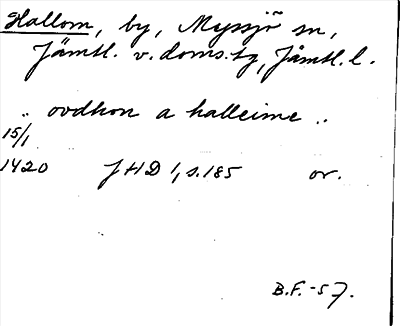 Hallom, by, Myssjö sn,
Jämtl. v. doms.tg, Jämtl. l.
.. ovdhon a halleime ..
15/1
1420 JHD 1, s. 185 or.
B.F.-57.